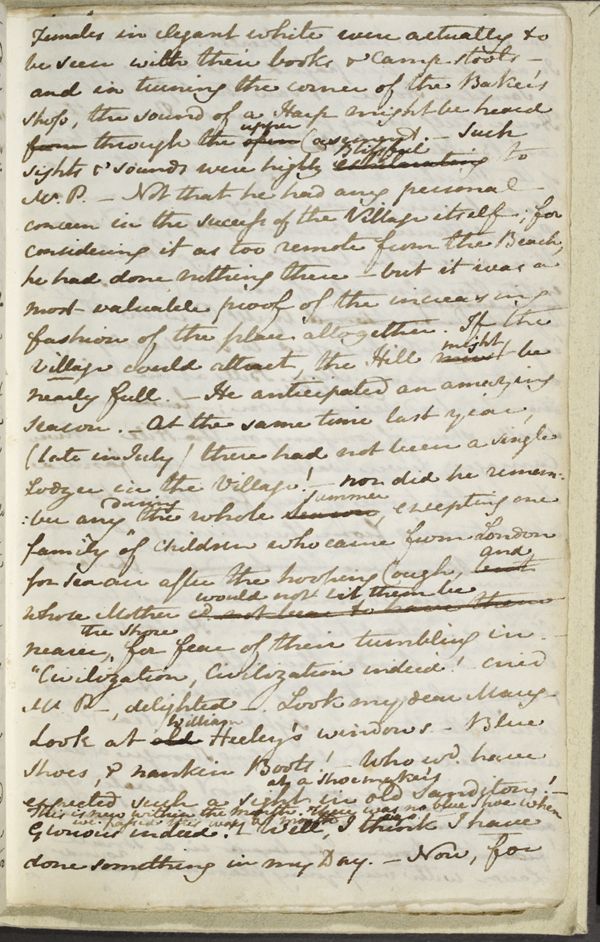 Females in elegant white were actually to
be seen with their books & camp stools –
and in turning the corner of the Baker's
shop, the sound of a Harp might be heard
from through the upper open Casement. – Such
sights & sounds were highly Blissful exhilarating to
Mr. P. – Not that he had any personal
concern in the success of the Village itself; for
considering it as too remote from the Beach,
he had done nothing there – but it was a
most valuable proof of the increasing
fashion of the place altogether. If the
Village could attract, the Hill might must be
nearly full. – He anticipated an amazing
Season. – At the same time last year,
(late in July) there had not been a single
Lodger in the Village! – nor did he remem:
:ber any during the whole Summer Season, excepting one
family of Children who came from London
for sea air after the hooping Cough, and
whose Mother would not let them be
nearer the shore for fear of their tumbling in. –
"Civilization, Civilization indeed! – cried
Mr. P–, delighted –. Look my dear Mary –
Look at William old Heeley's windows. – Blue
Shoes, & nankin Boots! – Who wd. have
expected such a sight at a Shoemaker's in old Sanditon! –
This is new within the month. There was no blue Shoe when
we passed this way a month ago. –
Glorious indeed! – Well, I think I have
done something in my Day. – Now, for